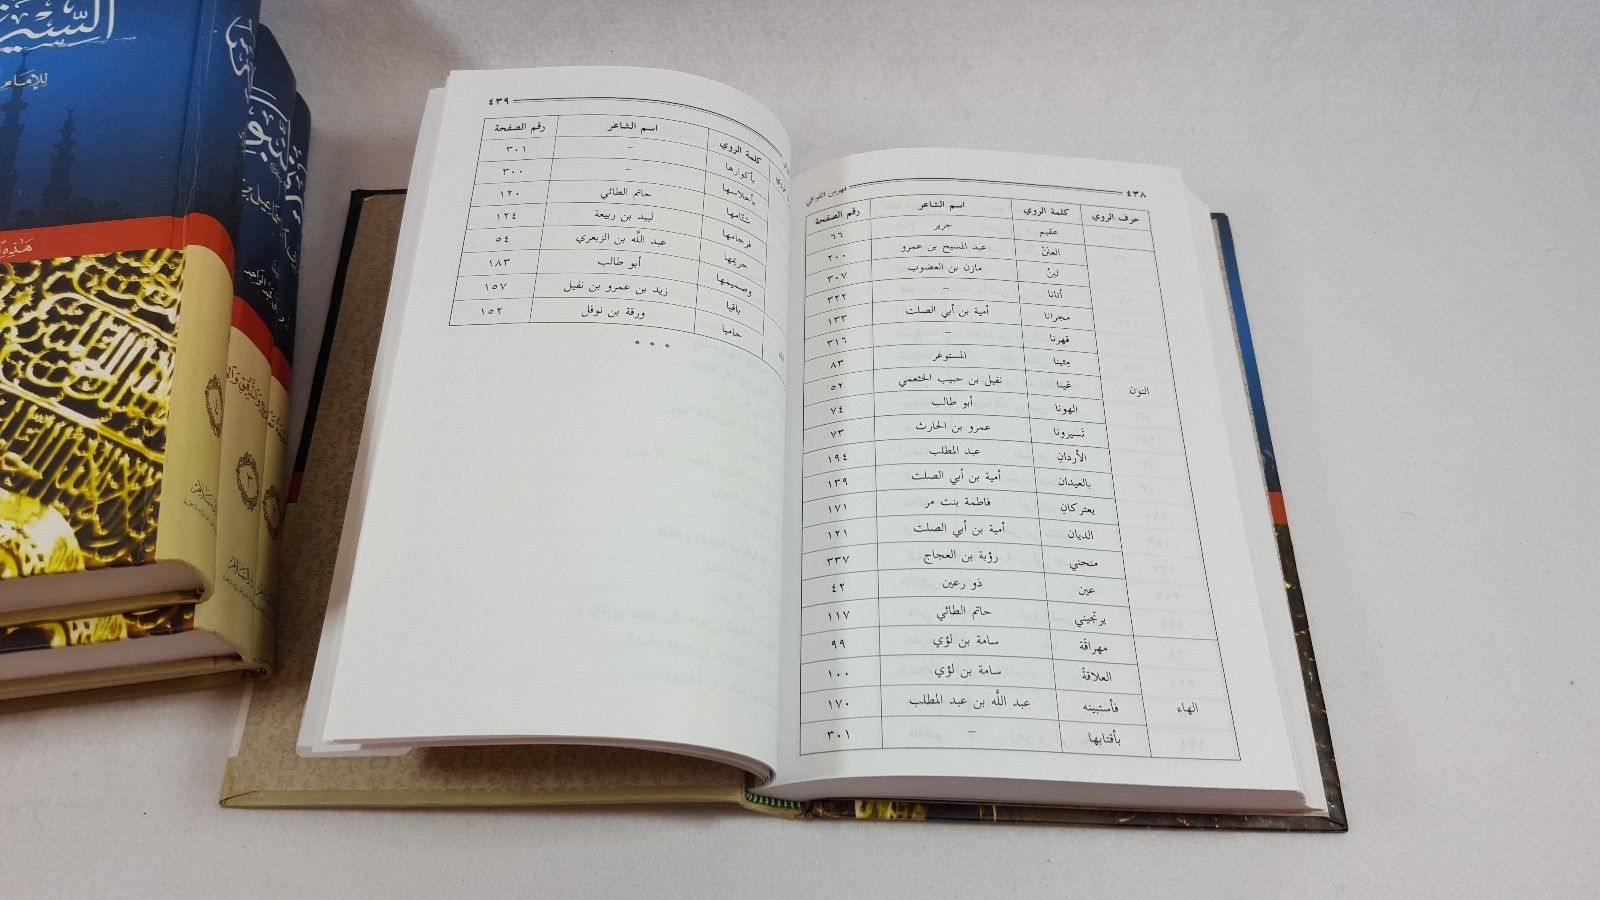 ٤٣٨ فهرس القوافي
حرف الروي كلمة الروي اسم الشاعر رقم الصفحة
عقيم جرير ٦٦
العننْ عبد المسيح بن عمرو ٢٠٠
لبنُ مازن بن العضوب ٣٠٧
أتانا – ٣٢٢
مجرانا أمية بن أبي الصلت ١٣٣
قهرنا – ٣١٦
مِئينا المستوغر ٨٣
عَينا نفيل بن حبيب الخثعمي ٥٢
النون الهونا أبو طالب ٧٤
تَسيرونا عمرو بن الحارث ٧٣
الأردانِ عبد المطلب ١٩٤
بالعيدان أمية بن أبي الصلت ١٣٩
يعتركانِ فاطمة بنت مر ١٧١
الديان أمية بن أبي الصلت ١٢١
منحني رؤبة بن العجاج ٣٣٧
عين ذو رعين ٤٢
يرتجيني حاتم الطائي ١١٧
مهراقَة سامة بن لؤي ٩٩
العلاقةْ سامة بن لؤي ١٠٠
الهاء فأستبينه عبد اللَّه بن عبد المطلب ١٧٠
بأقتابها – ٣٠١
٤٣٩
كلمة الروي اسم الشاعر رقم الصفحة
بأكوارها – ٣٠١
بأحلاسها – ٣٠٠
شتَّامها حاتم الطائي ١٢٠
فرجامها لبيد بن ربيعة ١٢٤
حريمها عبد اللَّه بن الزبعري ٥٤
وصميمها أبو طالب ١٨٣
باقيا زيد بن عمرو بن نفيل ١٥٧
حاميا ورقة بن نوفل ١٥٢
للإمام